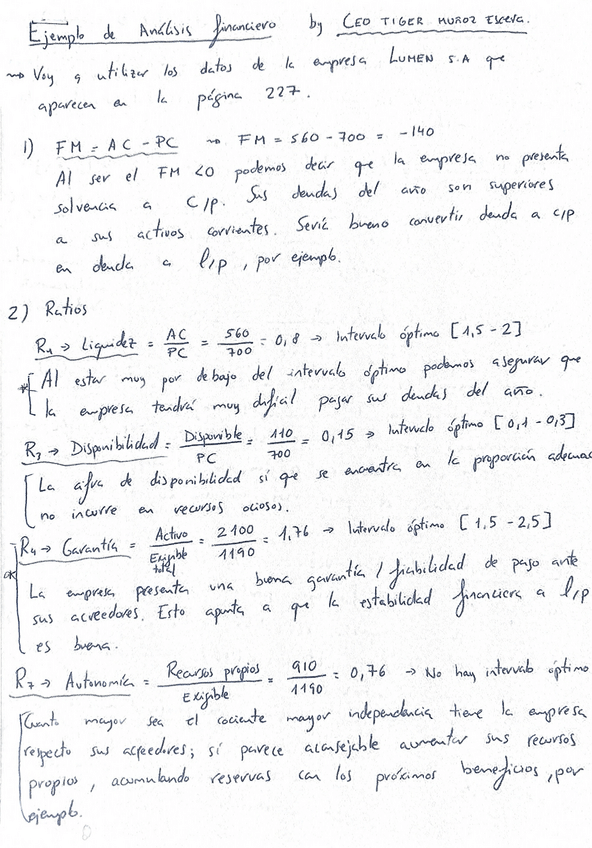 Ejemplo de Análisis financiero by CEO TIGER MUÑOZ Esceva.
→ Voy a utilizar los datos de la empresa LUMEN S.A que
aparecen en la página 227.
1) FM = AC - PC → FM = 560 - 700 = -140
Al ser el FM <0 podemos decir que la empresa no presenta
solvencia a C/p. Sus deudas del año son superiores
a sus activos corrientes. Sería bueno convertir deuda a c/p
en deuda a l/p, por ejemplo.
2) Ratios
R1 → Liquidez = AC/PC = 560/700 = 0,8 → Intervalo óptimo [1,5 - 2]
* Al estar muy por debajo del intervalo óptimo podemos asegurar que
la empresa tendrá muy difícil pagar sus deudas del año.
R3 → Disponibilidad = Disponible/PC = 110/700 = 0,15 → Intervalo óptimo [0,1 - 0,3]
La cifra de disponibilidad sí que se encuentra en la proporción
no incurre en recursos ociosos.
R4 → Garantía = Activo/Exigible total = 2100/1190 = 1,76 → Intervalo óptimo [1,5 - 2,5]
* La empresa presenta una buena garantía / fiabilidad de pago ante
sus acreedores. Esto apunta a que la estabilidad financiera a l/p
es buena.
R7 → Autonomía = Recursos propios/Exigible = 910/1190 = 0,76 → No hay intervalo óptimo
Cuanto mayor sea el cociente mayor independencia tiene la empresa
respecto sus acreedores; sí parece aconsejable aumentar sus recursos
propios, acumulando reservas con los próximos beneficios, por
ejemplo.